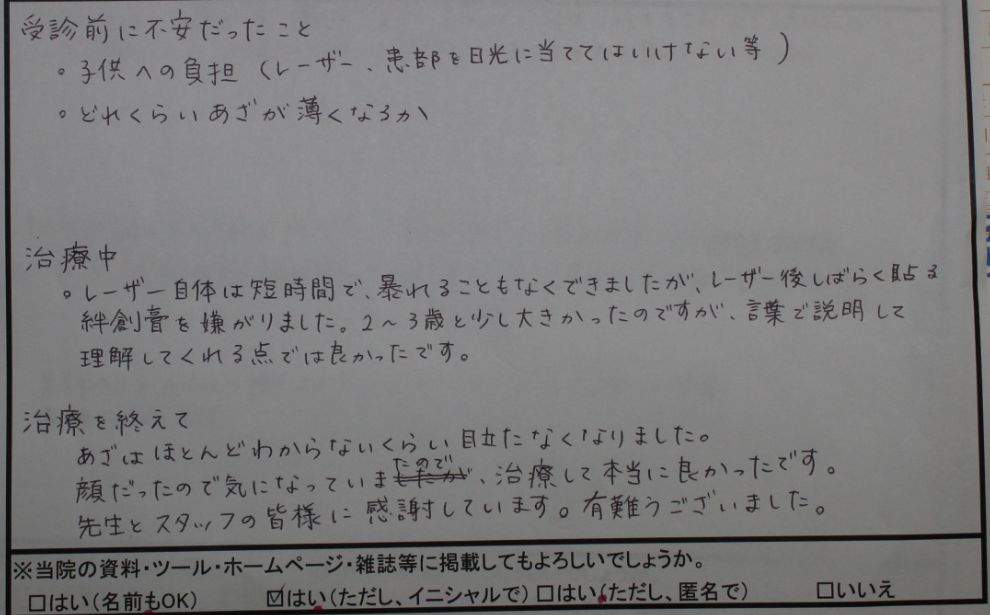 受診前に不安だったこと
。子供への負担(レーザー、患部を日光に当ててはいけない等)
。どれくらいあざが薄くなるか
治療中
。レーザー自体は短時間で、暴れることもなくできましたが、レーザー後しばらく貼る
絆創膏を嫌がりました。2～3歳と少し大きかったのですが、言葉で説明して
理解してくれる点では良かったです。
治療を終えて
あざはほとんどわからないくらい目立たなくなりました。
顔だったので気になっていましたのでしたが、治療して本当に良かったです。
先生とスタッフの皆様に感謝しています。有難うございました。
※当院の資料・ツール・ホームページ・雑誌等に掲載してもよろしいでしょうか。
□はい(名前もOK) ☑はい(ただし、イニシャルで) □はい(ただし、匿名で) □いいえ